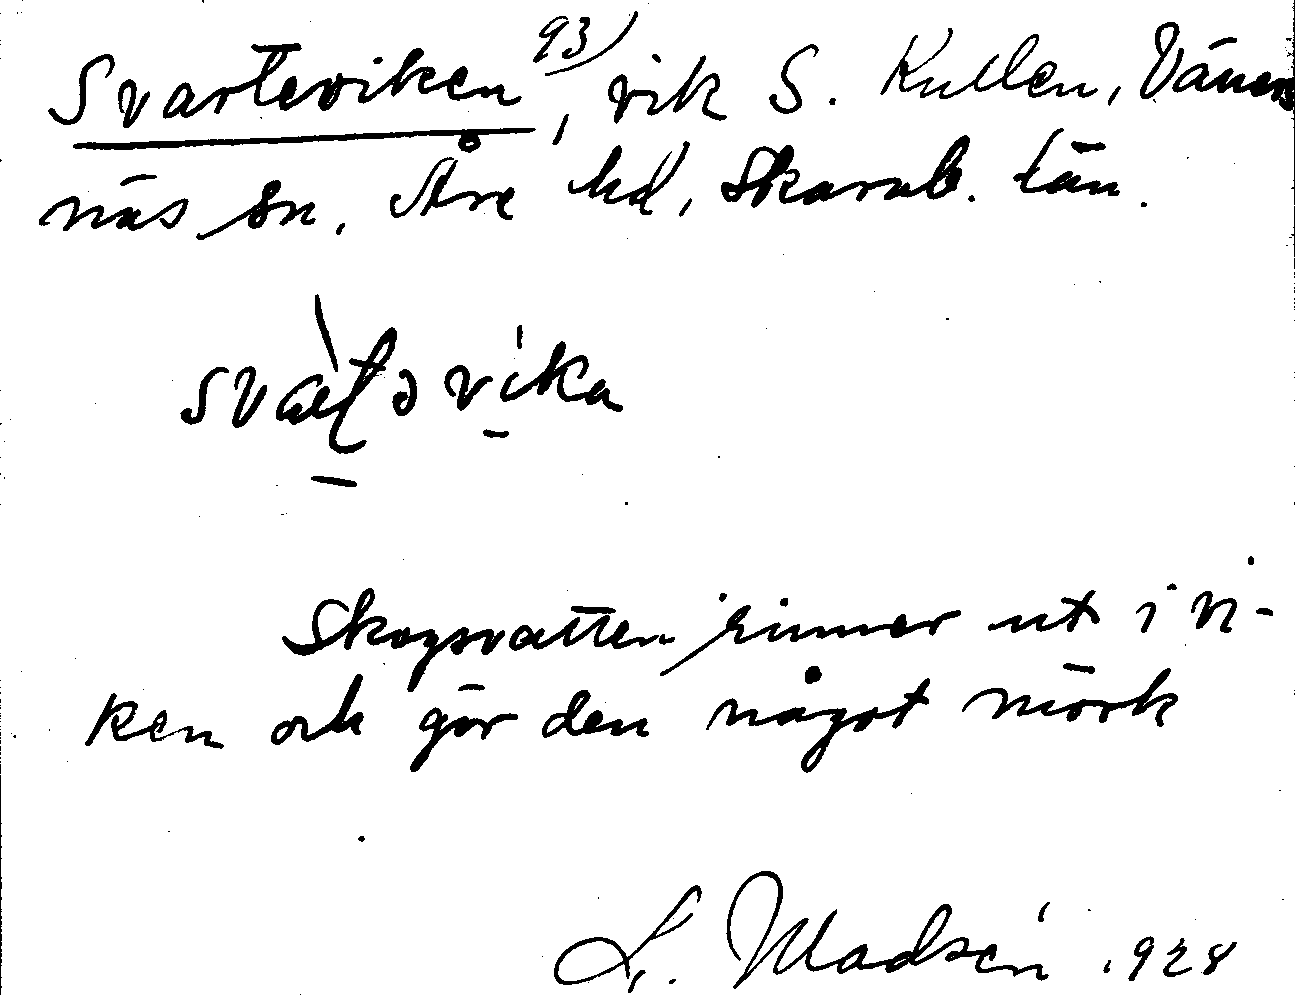 Svarteviken 93), vik S. Kullen, Väners
näs sn. Åre hd, Skarab. län.
svat̠əvika
Skogsvatten rinner ut i vi-
ken och gör den något mörk
L. Modsén 1928